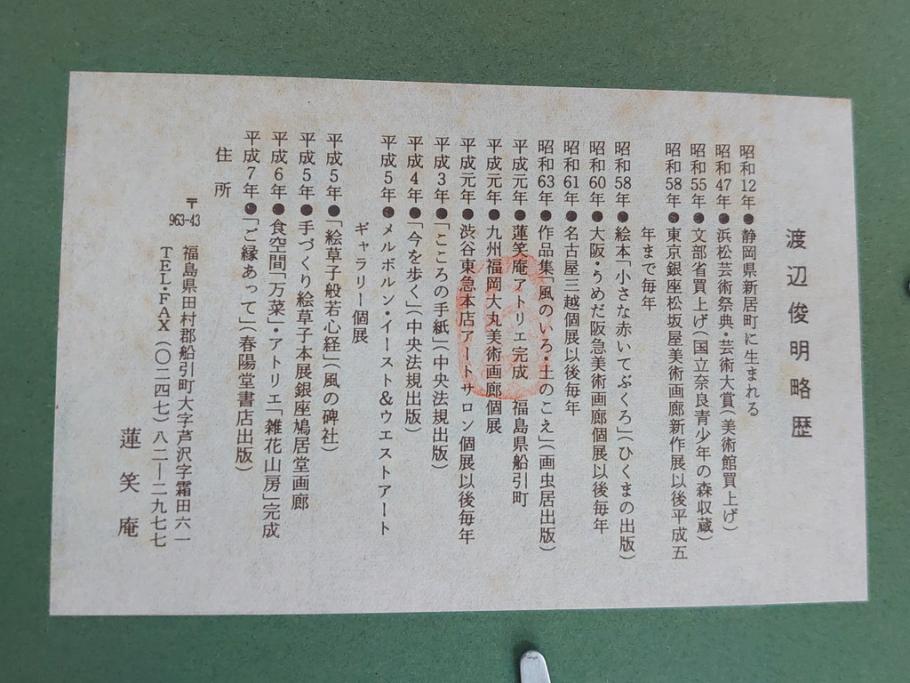 渡辺俊明略歴
昭和12年●静岡県新居町に生まれる
昭和47年●浜松芸術祭典・芸術大賞(美術館買上げ)
昭和55年●文部省買上げ(国立奈良青少年の森収蔵)
昭和58年●東京銀座松坂屋美術画廊新作展以後平成五
年まで毎年
昭和58年●絵本「小さな赤いてぶくろ」(ひくまの出版)
昭和60年●大阪・うめだ阪急美術画廊個展以後毎年
昭和61年●名古屋三越個展以後毎年
昭和63年●作品集「風のいろ・土のこえ」(画虫居出版)
平成元年●蓮笑庵アトリエ完成 福島県船引町
平成元年●九州福岡大丸美術画廊個展
平成元年●渋谷東急本店アートサロン個展以後毎年
平成3年●「こころの手紙」(中央法規出版)
平成4年●「今を歩く」(中央法規出版)
平成5年●メルボルン・イースト&ウエストアート
ギャラリー個展
平成5年●「絵草子般若心経」(風の碑社)
平成5年●手づくり絵草子本展銀座鳩居堂画廊
平成6年●食空間「万菜」・アトリエ「雑花山房」完成
平成7年●「ご縁あって」(春陽堂書店出版)
住所
〒963-43 福島県田村郡船引町大字芦沢字霜田六一
TEL・FAX(〇二四七)八二―二九七七
蓮笑庵